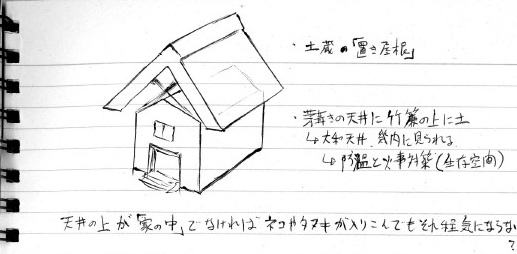 ・土蔵の「置き屋根」
・茅葺きの天井に竹簾の上に土
↳大和天井、畿内に見られる
↳防温と火事対策(生存空間)
天井の上が「家の中」でなければネコやタヌキが入りこんでもそれ程気にならない
?